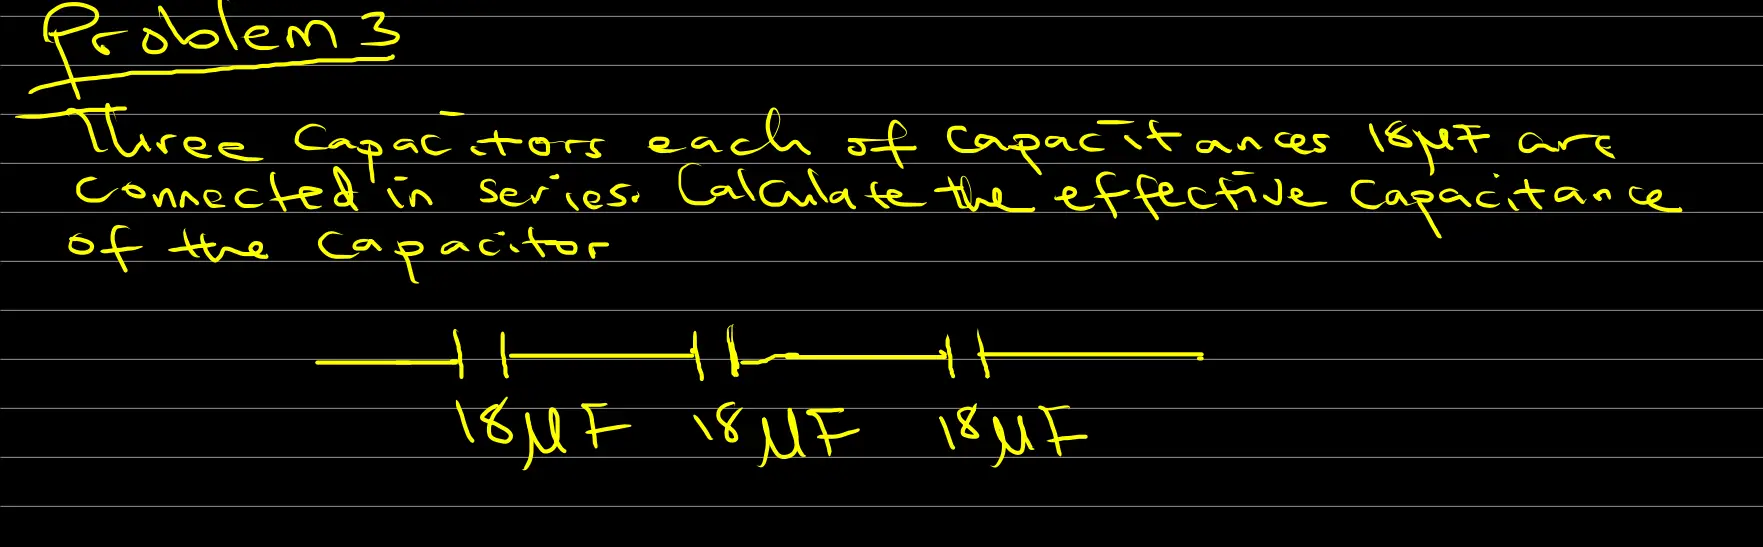 Problem 3
Three Capacitors each of capacitances 18μF are
connected in series. Calculate the effective capacitance
of the capacitor
18μF 18μF 18μF